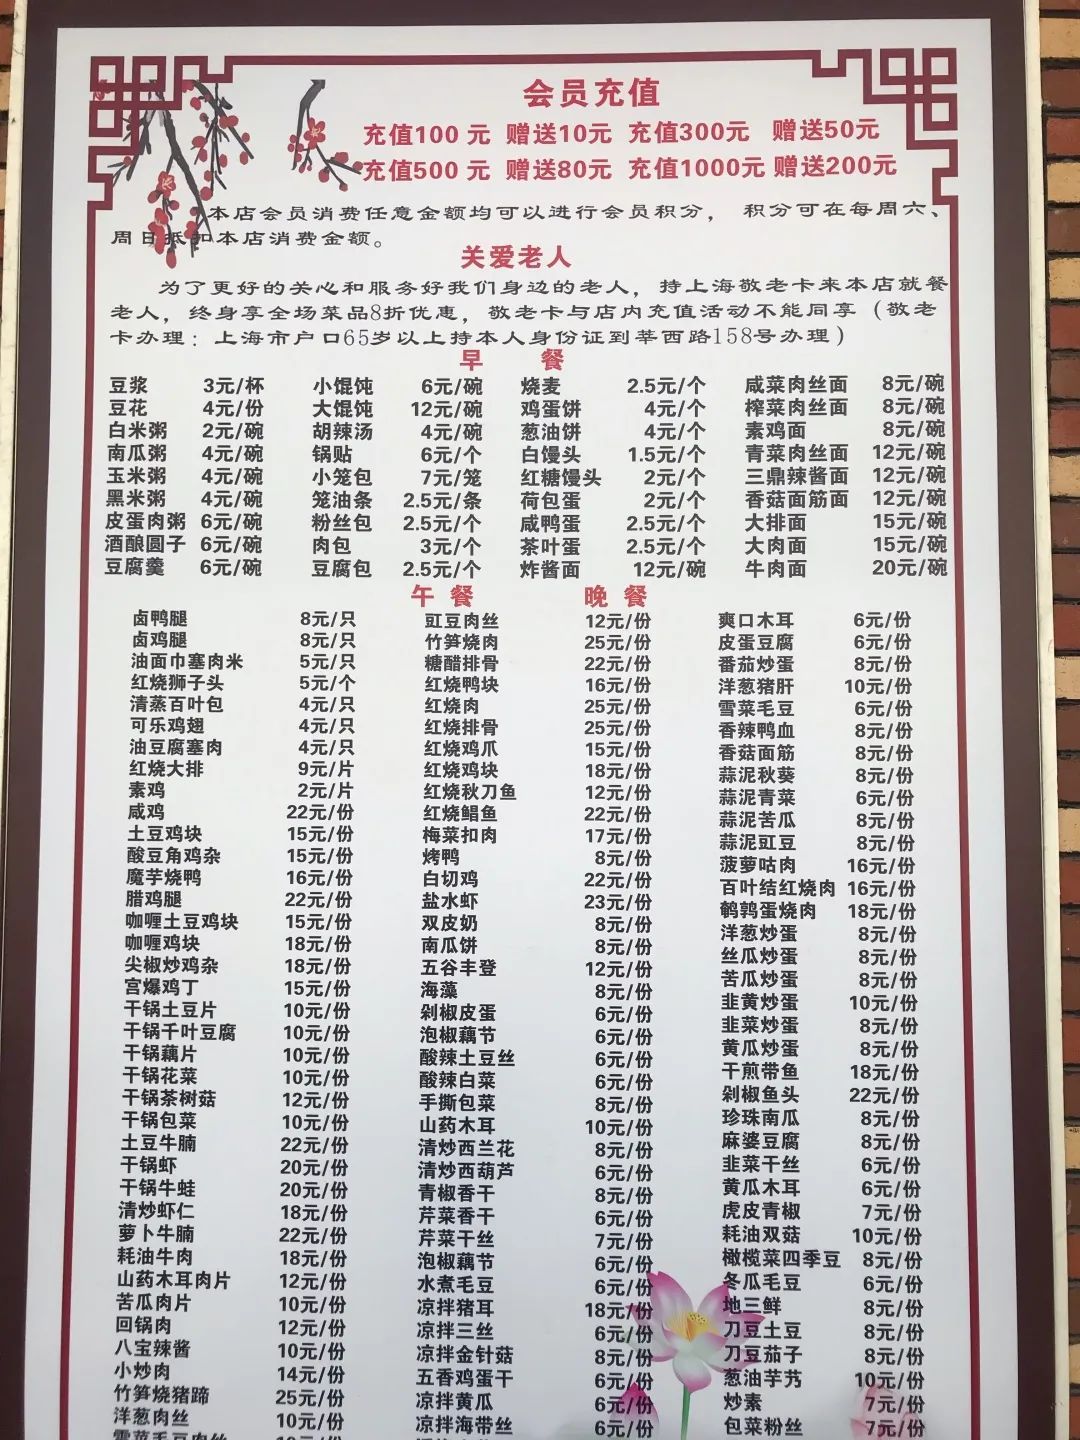 会员充值
充值100 元 赠送10元 充值300元 赠送50元
充值500 元 赠送80元 充值1000元 赠送200元
本店会员消费任意金额均可以进行会员积分， 积分可在每周六、
周日抵扣本店消费金额。
关爱老人
为了更好的关心和服务好我们身边的老人，持上海敬老卡来本店就餐
老人，终身享全场菜品8折优惠，敬老卡与店内充值活动不能同享（敬老
卡办理：上海市户口65岁以上持本人身份证到莘西路158号办理）
早 餐
豆浆 3元/杯 小馄饨 6元/碗 烧麦 2.5元/个 咸菜肉丝面 8元/碗
豆花 4元/份 大馄饨 12元/碗 鸡蛋饼 4元/个 榨菜肉丝面 8元/碗
白米粥 2元/碗 胡辣汤 4元/碗 葱油饼 4元/个 素鸡面 8元/碗
南瓜粥 4元/碗 锅贴 6元/个 白馒头 1.5元/个 青菜肉丝面 12元/碗
玉米粥 4元/碗 小笼包 7元/笼 红糖馒头 2元/个 三鼎辣酱面 12元/碗
黑米粥 4元/碗 笼油条 2.5元/条 荷包蛋 2元/个 香菇面筋面 12元/碗
皮蛋肉粥 6元/碗 粉丝包 2.5元/个 咸鸭蛋 2.5元/个 大排面 15元/碗
酒酿圆子 6元/碗 肉包 3元/个 茶叶蛋 2.5元/个 大肉面 15元/碗
豆腐羹 6元/碗 豆腐包 2.5元/个 炸酱面 12元/碗 牛肉面 20元/碗
午 餐 晚 餐
卤鸭腿 8元/只 豇豆肉丝 12元/份 爽口木耳 6元/份
卤鸡腿 8元/只 竹笋烧肉 25元/份 皮蛋豆腐 6元/份
油面巾塞肉米 5元/只 糖醋排骨 22元/份 番茄炒蛋 8元/份
红烧狮子头 5元/个 红烧鸭块 16元/份 洋葱猪肝 10元/份
清蒸百叶包 4元/只 红烧肉 25元/份 雪菜毛豆 6元/份
可乐鸡翅 4元/只 红烧排骨 25元/份 香辣鸭血 8元/份
油豆腐塞肉 4元/只 红烧鸡爪 15元/份 香菇面筋 8元/份
红烧大排 9元/片 红烧鸡块 18元/份 蒜泥秋葵 8元/份
素鸡 2元/片 红烧秋刀鱼 12元/份 蒜泥青菜 6元/份
咸鸡 22元/份 红烧鲳鱼 22元/份 蒜泥苦瓜 8元/份
土豆鸡块 15元/份 梅菜扣肉 17元/份 蒜泥豇豆 8元/份
酸豆角鸡杂 15元/份 烤鸭 8元/份 菠萝咕肉 16元/份
魔芋烧鸭 16元/份 白切鸡 22元/份 百叶结红烧肉 16元/份
腊鸡腿 22元/份 盐水虾 23元/份 鹌鹑蛋烧肉 18元/份
咖喱土豆鸡块 15元/份 双皮奶 8元/份 洋葱炒蛋 8元/份
咖喱鸡块 18元/份 南瓜饼 8元/份 丝瓜炒蛋 8元/份
尖椒炒鸡杂 18元/份 五谷丰登 12元/份 苦瓜炒蛋 8元/份
宫爆鸡丁 15元/份 海藻 8元/份 韭黄炒蛋 10元/份
干锅土豆片 10元/份 剁椒皮蛋 6元/份 韭菜炒蛋 8元/份
干锅千叶豆腐 10元/份 泡椒藕节 6元/份 黄瓜炒蛋 8元/份
干锅藕片 10元/份 酸辣土豆丝 6元/份 干煎带鱼 18元/份
干锅花菜 10元/份 酸辣白菜 6元/份 剁椒鱼头 22元/份
干锅茶树菇 12元/份 手撕包菜 8元/份 珍珠南瓜 8元/份
干锅包菜 10元/份 山药木耳 10元/份 麻婆豆腐 8元/份
土豆牛腩 22元/份 清炒西兰花 8元/份 韭菜干丝 6元/份
干锅虾 20元/份 清炒西葫芦 6元/份 黄瓜木耳 6元/份
干锅牛蛙 20元/份 青椒香干 8元/份 虎皮青椒 7元/份
清炒虾仁 18元/份 芹菜香干 6元/份 耗油双菇 10元/份
萝卜牛腩 22元/份 芹菜干丝 7元/份 橄榄菜四季豆 8元/份
耗油牛肉 18元/份 泡椒藕节 6元/份 冬瓜毛豆 6元/份
山药木耳肉片 12元/份 水煮毛豆 6元/份 地三鲜 8元/份
苦瓜肉片 10元/份 凉拌猪耳 18元/份 刀豆土豆 8元/份
回锅肉 12元/份 凉拌三丝 6元/份 刀豆茄子 8元/份
八宝辣酱 10元/份 凉拌金针菇 8元/份 葱油芋艿 10元/份
小炒肉 14元/份 五香鸡蛋干 6元/份 炒素 7元/份
竹笋烧猪蹄 25元/份 凉拌黄瓜 6元/份 包菜粉丝 7元/份
洋葱肉丝 10元/份 凉拌海带丝 6元/份